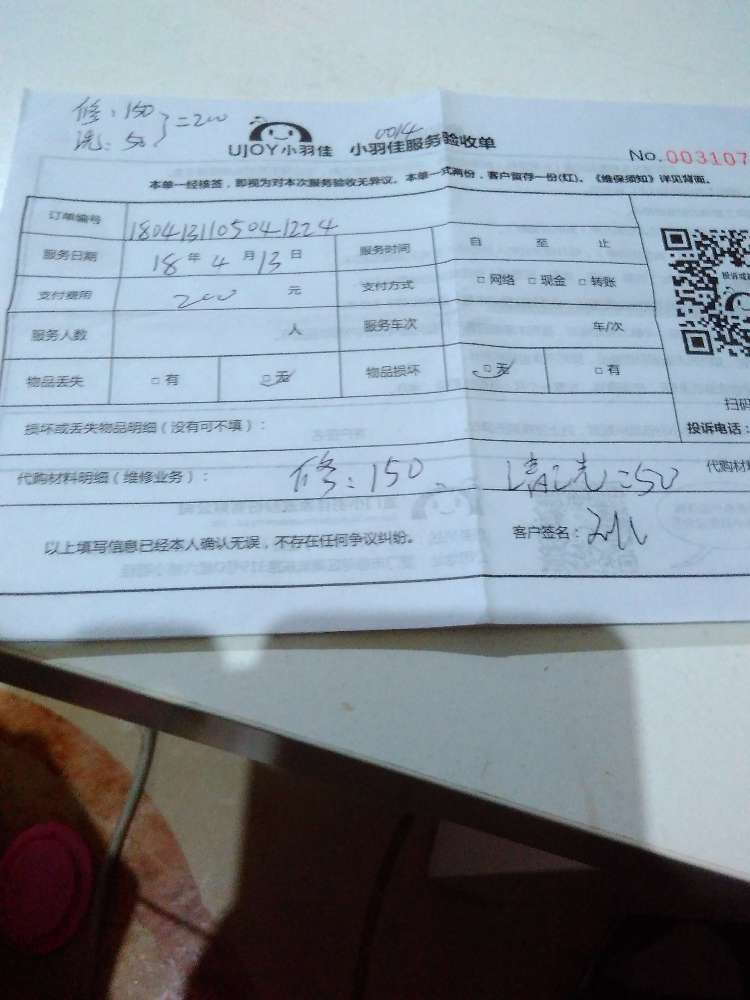 修：150
洗：50 }=200
UJOY小羽佳 小羽佳服务验收单
0014
No.003107
本单一经接签，即视为对本次服务验收无异议。本单一式两份，客户留存一份(红)。《维保须知》详见背面。
订单编号 1804131105041224
服务日期 18 年 4 月 13 日 服务时间 自 至 止
支付费用 200 元 支付方式 □ 网络 □ 现金 □ 转账
服务人数 人 服务车次 车/次
物品丢失 □ 有 □ 无 物品损坏 □ 无 □ 有
扫码
损坏或丢失物品明细（没有可不填）： 投诉电话：
代购材料明细（维修业务）： 修：150、清洗=50 代购材
以上填写信息已经本人确认无误，不存在任何争议纠纷。 客户签名：